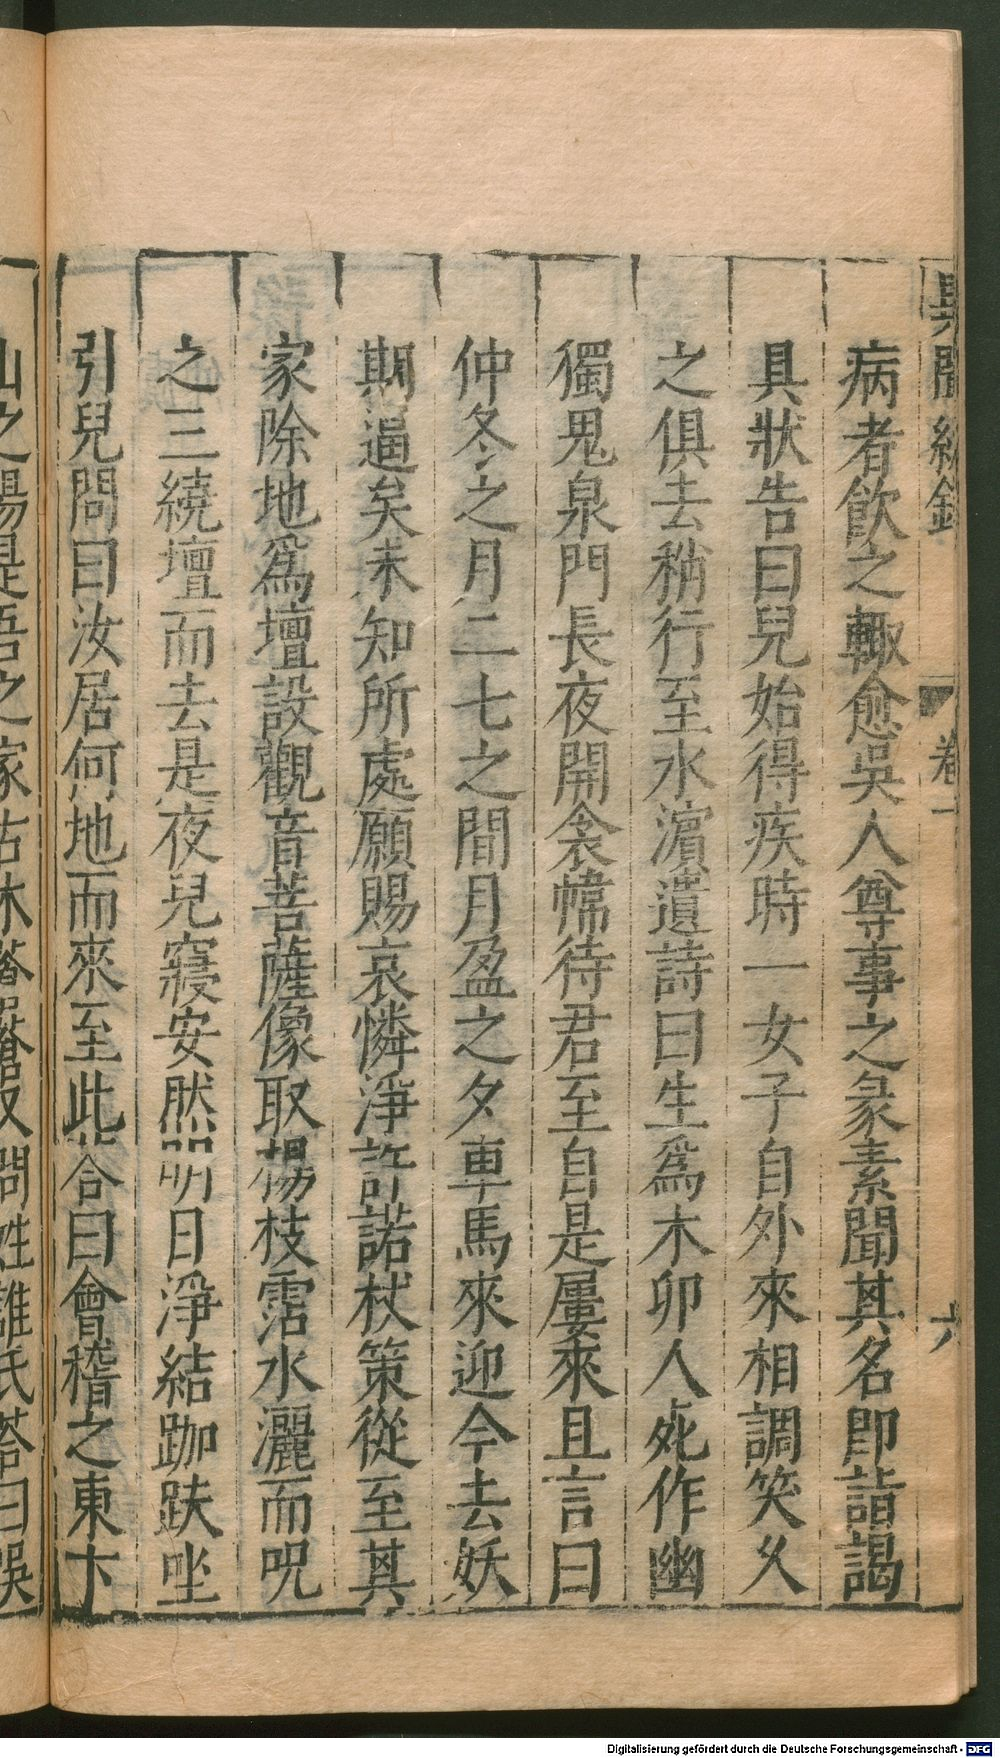 異聞總錄
卷一
六
病者飲之輙愈吳人尊事之彖素聞其名即詣謁
具狀告曰兒始得疾時一女子自外來相調笑久
之俱去稍行至水濵遺詩曰生爲木卯人死作幽
獨鬼泉門長夜開衾幃待君至自是屢來且言曰
仲冬之月二七之間月盈之夕車馬來迎今去妖
期逼矣未知所處願賜哀憐淨許諾杖策從至其
家除地爲壇設觀音菩薩像取楊枝霑水灑而呪
之三繞壇而去是夜兒寢安然明日淨結跏趺坐
引兒問曰汝居何地而來至此荅曰會稽之東卞
山之陽是吾之家古木蒼蒼又問姓誰氏荅曰吳
Digitalisierung gefördert durch die Deutsche Forschungsgemeinschaft - DFG